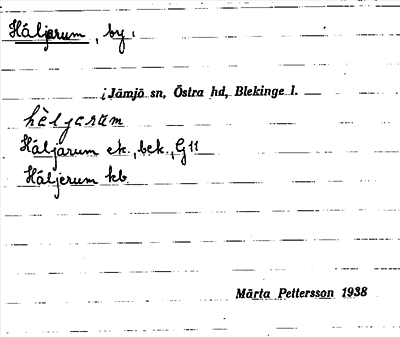 Håljarum, by.
i Jämjö sn, Östra hd, Blekinge l.
hèl̨jarum
Håljarum ek., bek., G 11
Håljerum kb
Märta Pettersson 1938